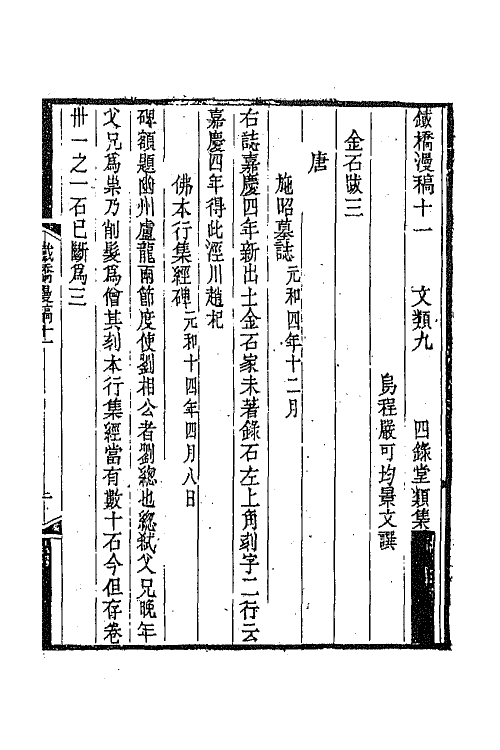 鐵橋漫稿十一　文類九　四錄堂類集
烏程嚴可均景文譔
金石跋三
唐
施昭墓誌元和四年十二月
右誌嘉慶四年新出土金石家未著錄石左上角刻字二行云
嘉慶四年得此涇川趙杞
佛本行集經碑元和十四年四月八日
碑額題幽州盧龍兩節度使劉相公者劉總也總弑父兄晚年
父兄為祟乃削髮為僧其刻本行集經當有數十石今但存卷
卅一之一石已斷為三
鐵橋漫稿十一
一